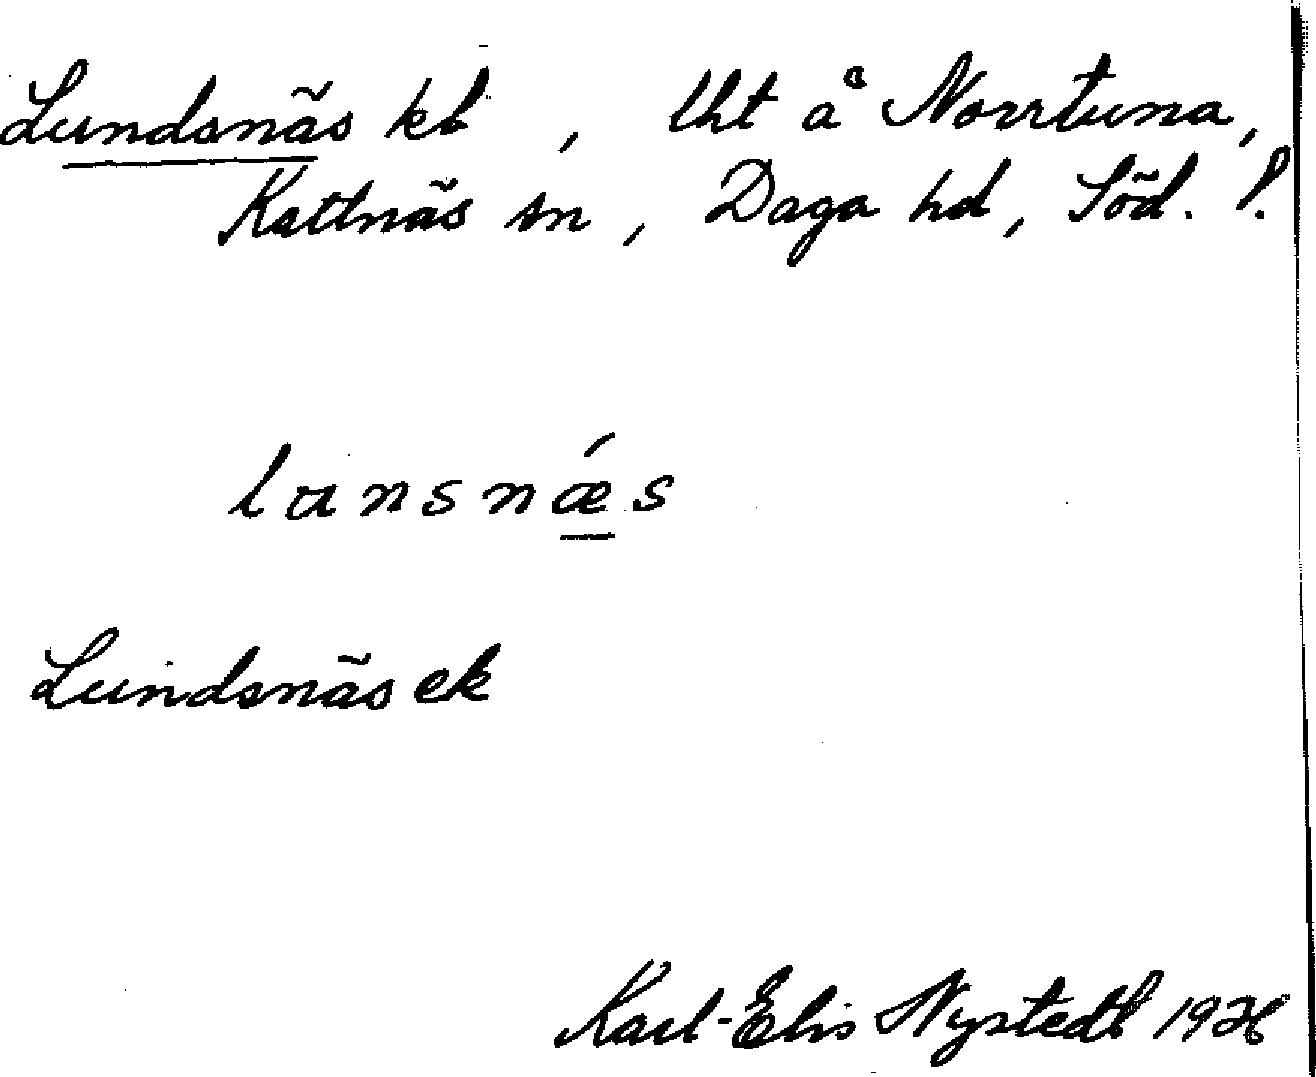 Lundsnäs kl , lht å Norrtuna,
Kattnäs sn , Daga hd, Söd. l.
lunsnǽs
Lundsnäs ek
Karl-Elis Nystedt 1926